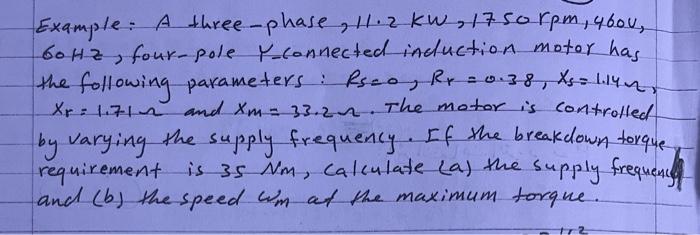 Example: A three-phase, 11.2 kW, 1750 rpm, 460V,
60HZ, four-pole Y-connected induction motor has
the following parameters: Rs=0, Rr = 0.38, Xs=1.14Ω,
Xr=1.71Ω and Xm = 33.2Ω. The motor is controlled
by varying the supply frequency. If the breakdown torque
requirement is 35 Nm, calculate (a) the supply frequency
and (b) the speed ωm at the maximum torque.